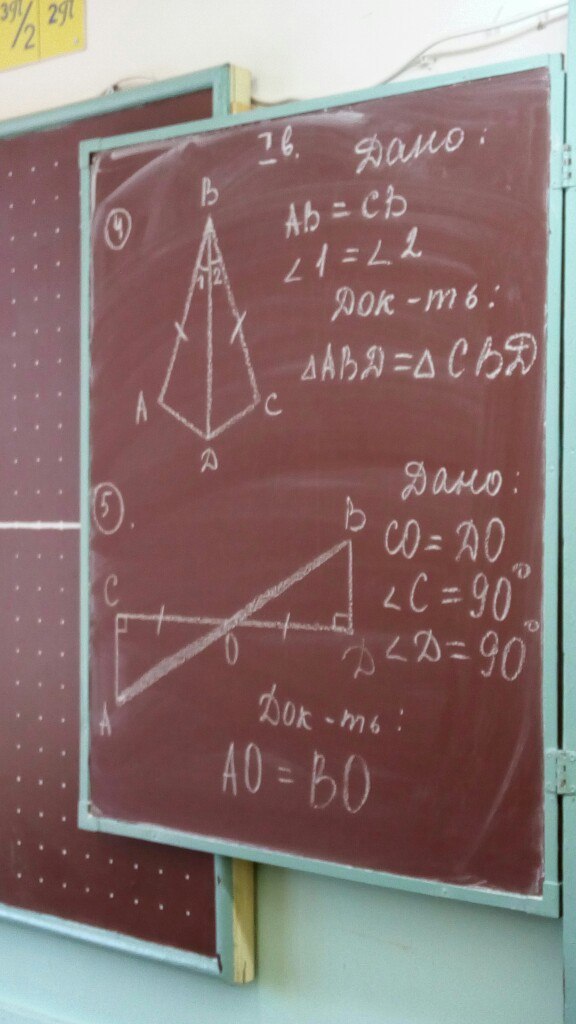 3π/2 2π
I в.
Дано:
④
AB = CB
∠1 = ∠2
Док-ть:
△ABД = △CBД
B
1 2
A
C
Д
⑤.
Дано:
CO = ДO
∠C = 90°
∠Д = 90°
B
C
O
Д
A
Док-ть:
AO = BO